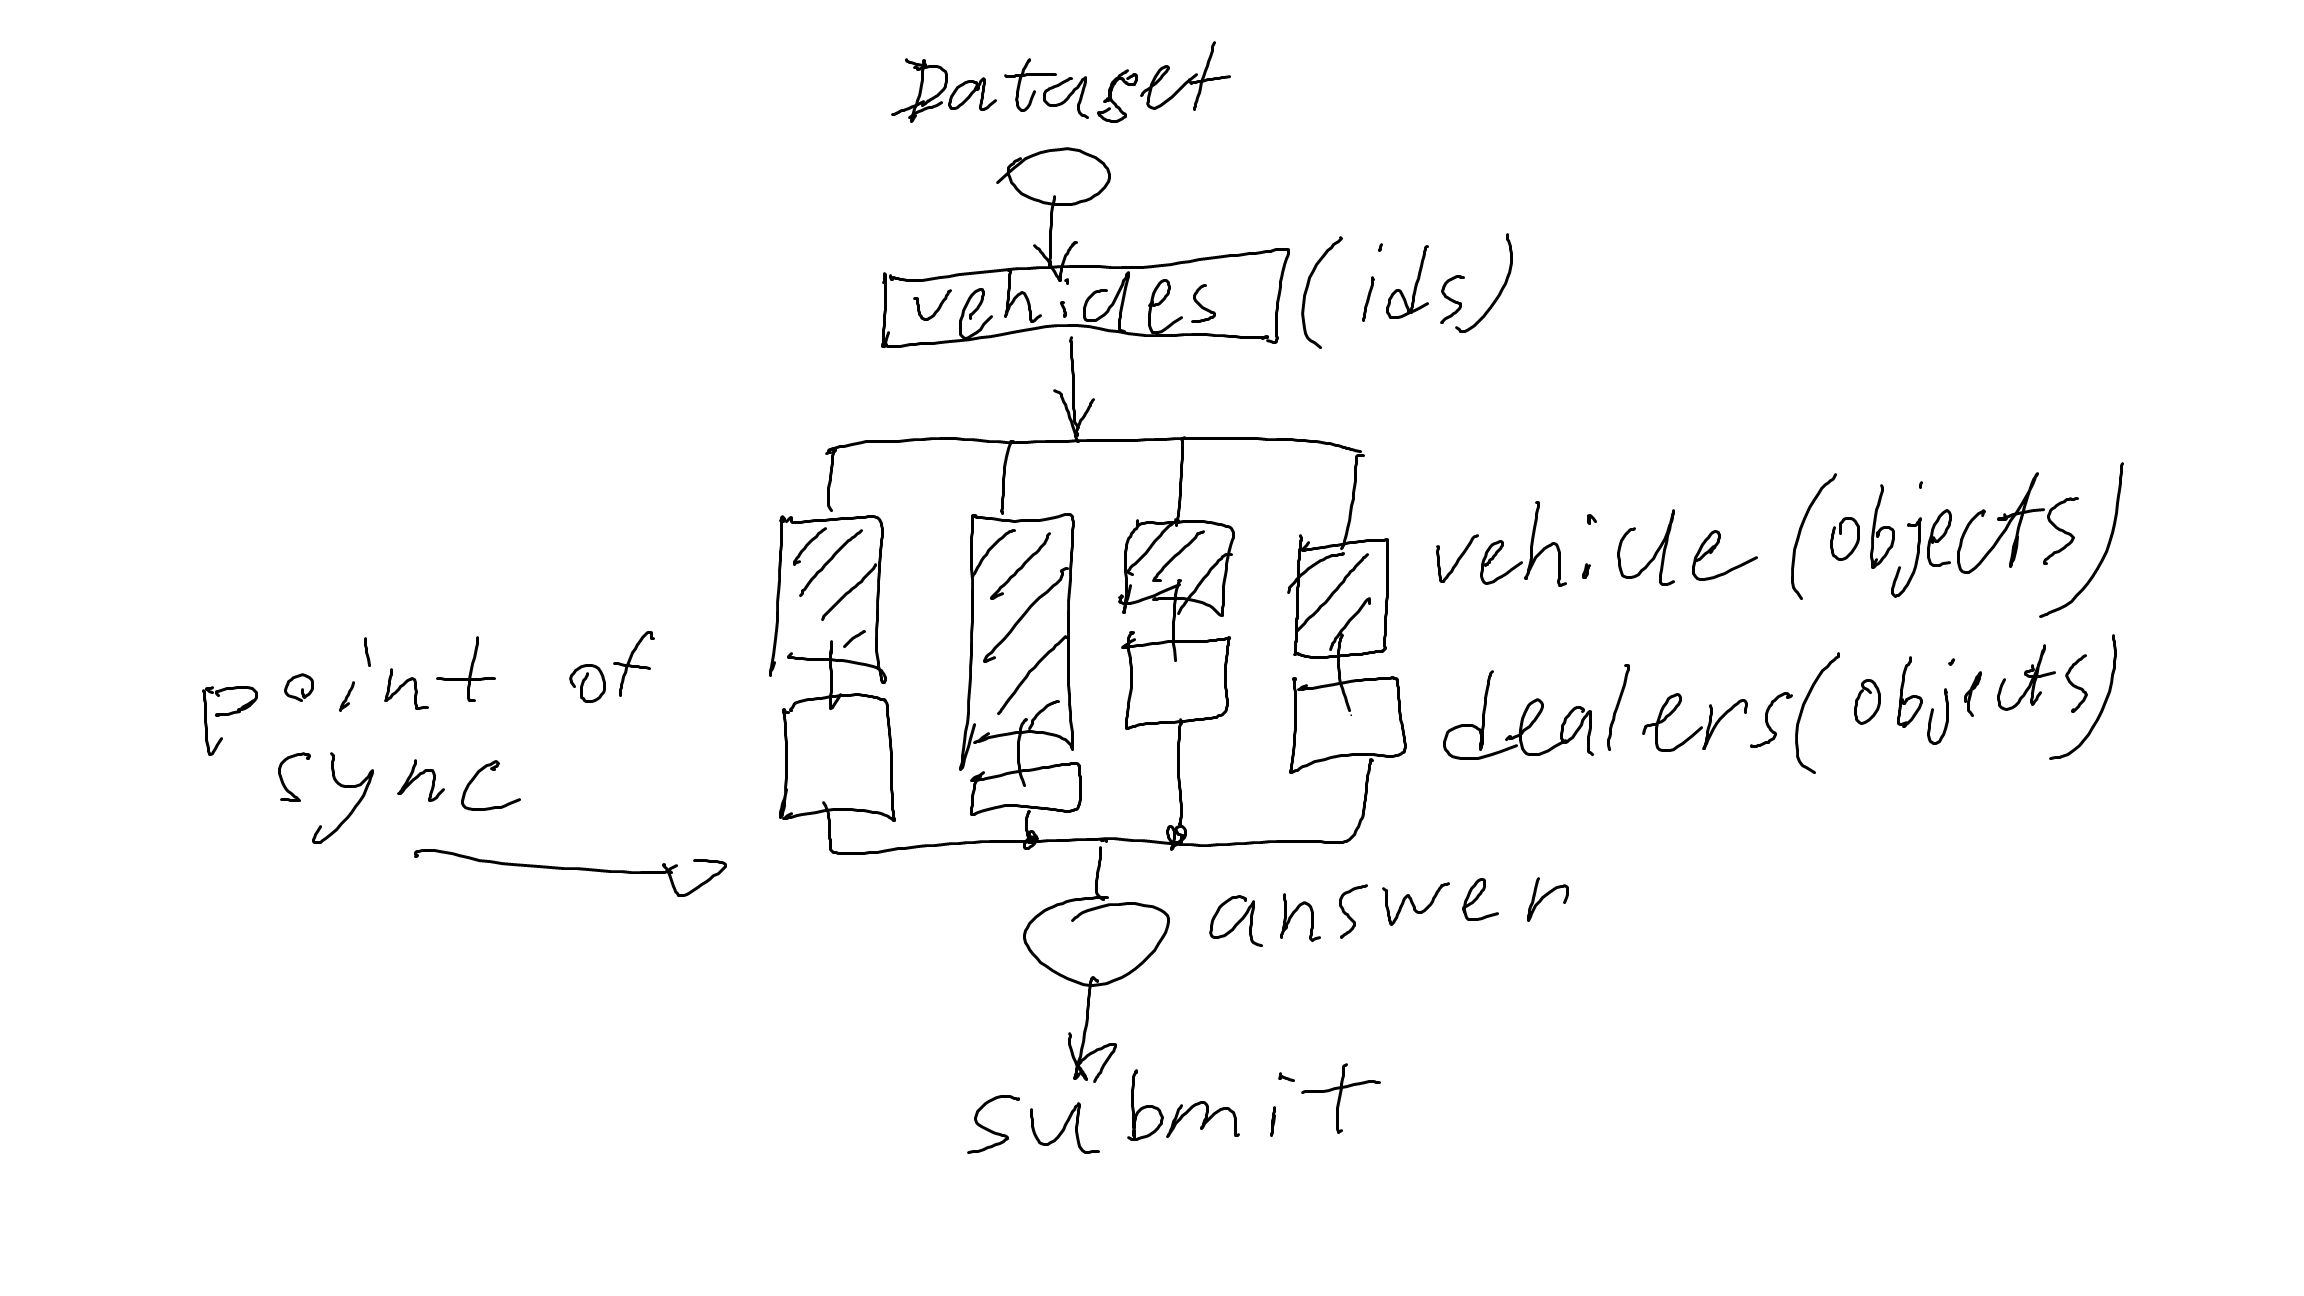 Dataset
vehicles (ids)
vehicle (objects)
dealers (objects)
point of
sync
answer
submit